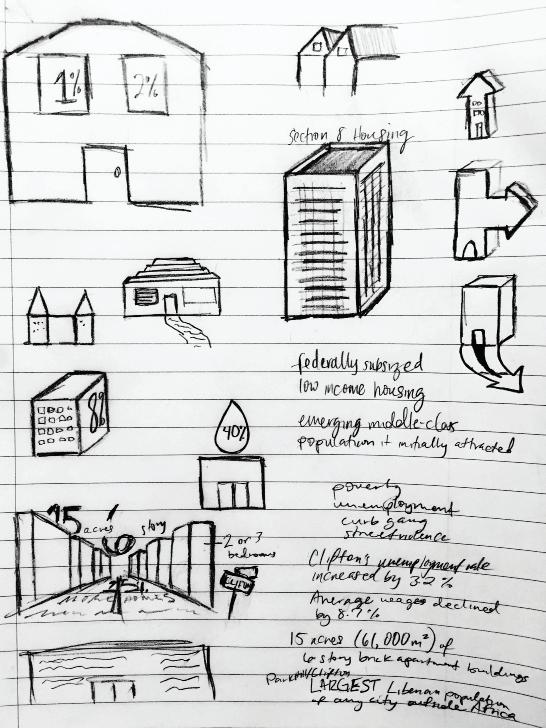 1% 2%
Section 8 Housing
8%
40%
federally subsized
low income housing
emerging middle-class
population it initially attracted
15 acres 6 story
2 or 3
bedrooms
MORE HOMES
poverty
unemployment
curb gang
street violence
Clifton's unemployment rate
increased by 32%
Average wages declined
by 8.7%
15 acres (61,000 m²) of
6 story brick apartment buildings
Parkhill/Clifton
LARGEST Liberian population
of any city outside Africa